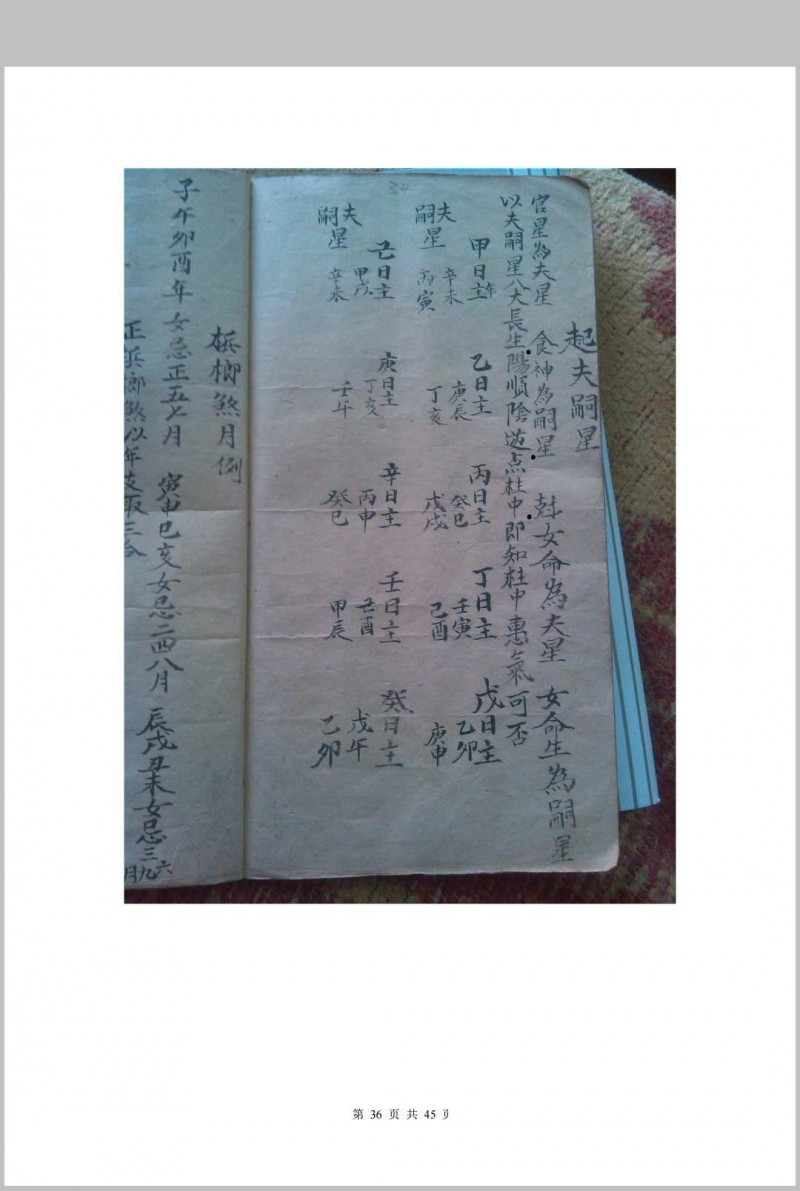 34
起夫嗣星
官星為夫星 食神為嗣星 尅女命為夫星 女命生為嗣星
以夫嗣星入大長生陽順陰逆点柱中即知柱中惠氣可否
甲日主年 乙日主 丙日主 丁日主 戊日主
夫星 辛未 庚辰 癸巳 壬寅 乙卯
嗣星 丙寅 丁亥 戊戌 己酉 庚申
己日主 庚日主 辛日主 壬日主 癸日主
夫星 甲戌 丁亥 丙申 己酉 戊午
嗣星 辛未 壬午 癸巳 甲辰 乙卯
梹榔煞月例
子午卯酉年女忌正五七月 寅申巳亥女忌二四八月 辰戌丑未女忌三六九月
正梹榔煞以年支取三合
第 36 页 共 45 页